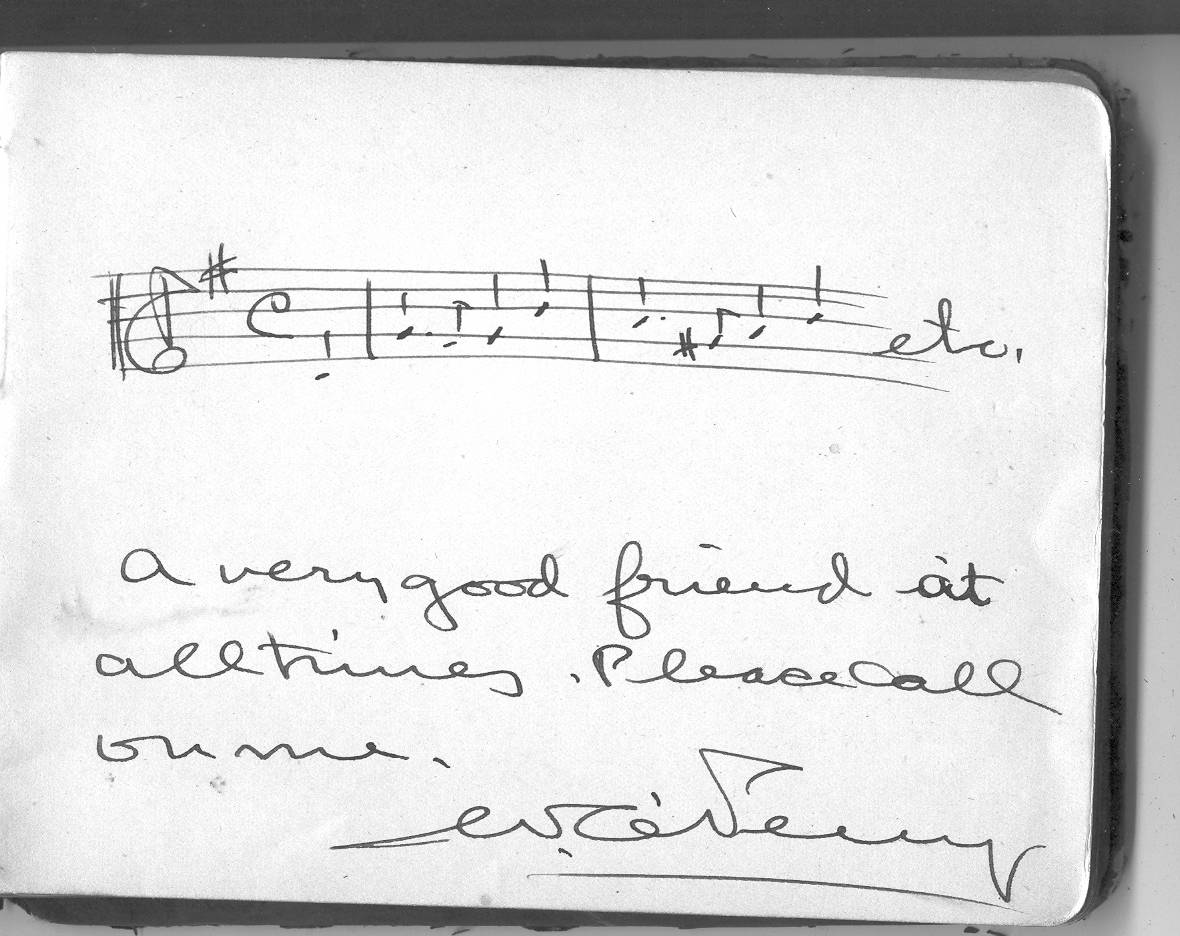 etc.
A very good friend at
all times. Please call
on me.